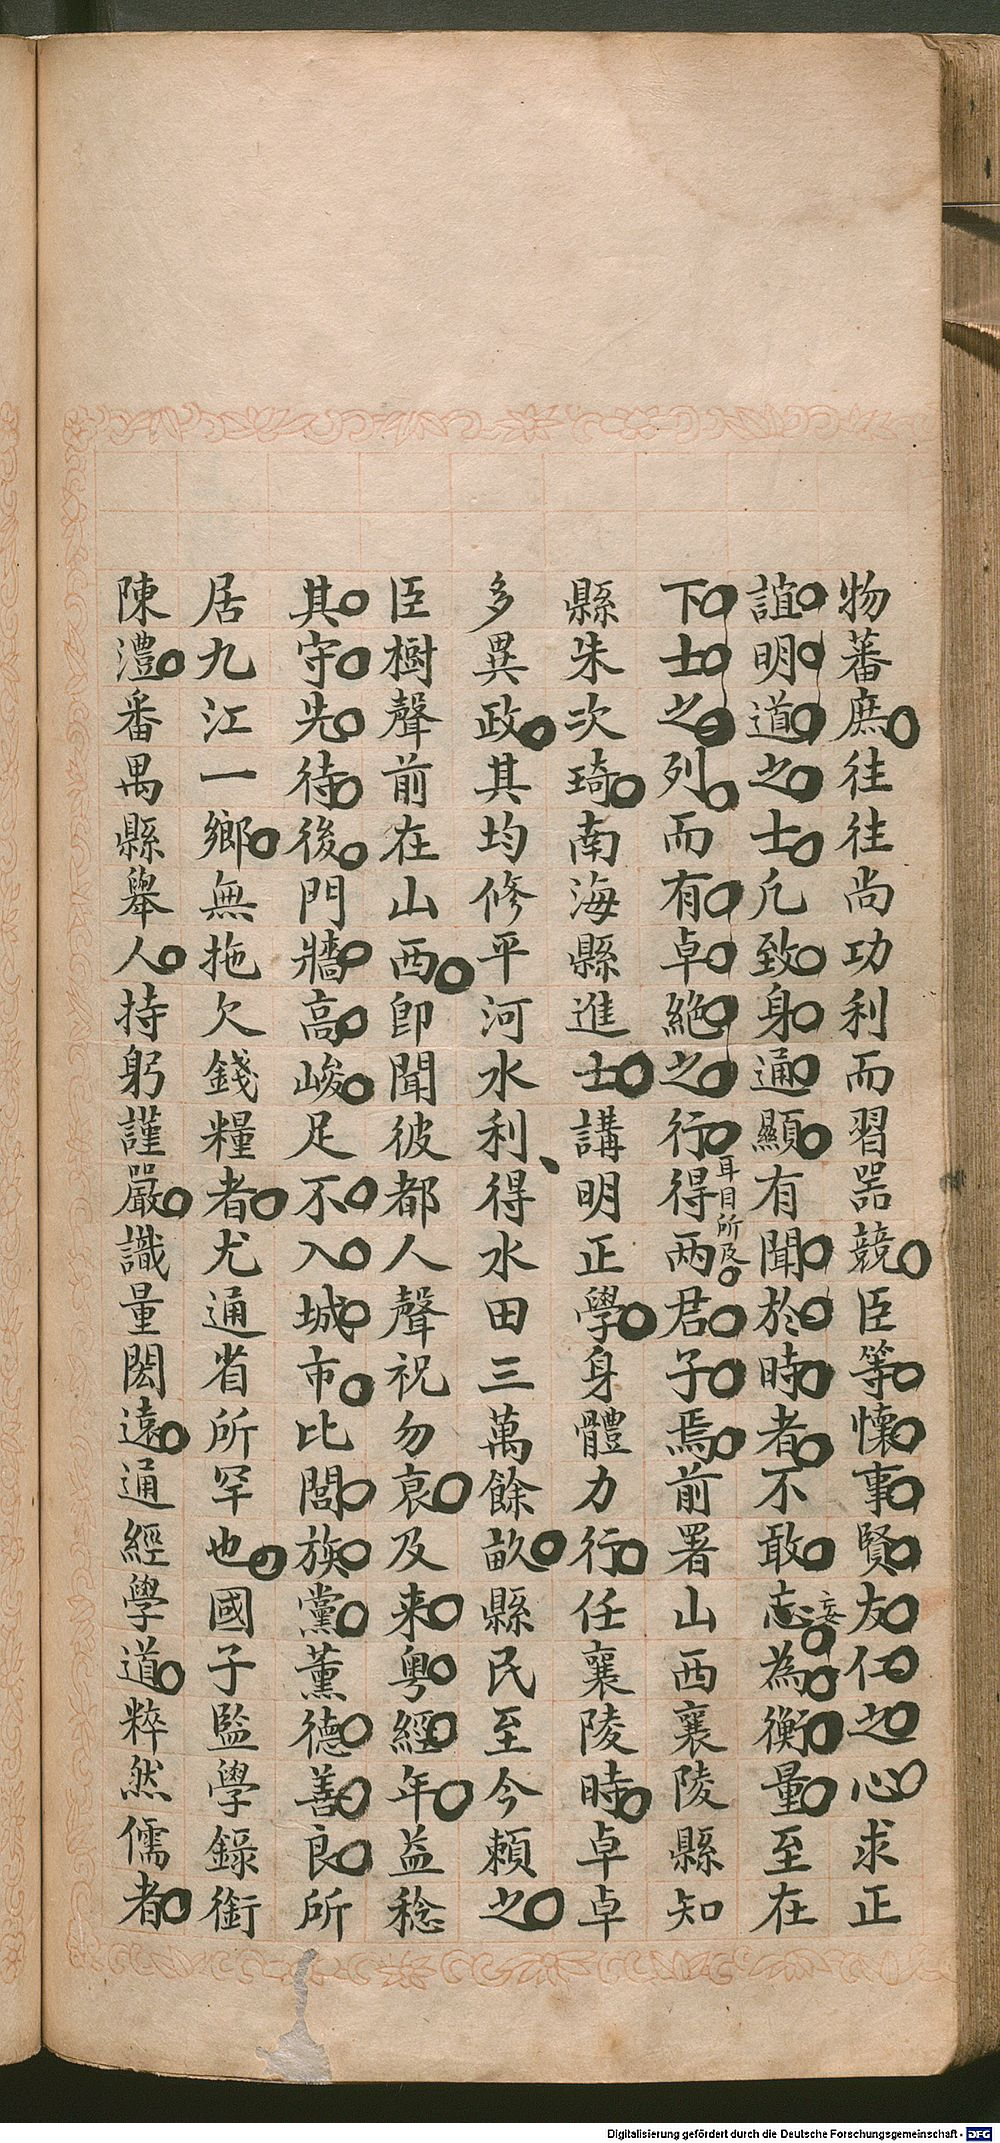 物蕃庶往往尚功利而習噐競臣等懷事賢友仁之心求正
誼明道之士凢致身通顯有聞於時者不敢妄志為衡量至在
下士之列而有卓絕之行得兩君子焉前署山西襄陵縣知
耳目所及
縣朱次琦南海縣進士講明正學身體力行任襄陵時卓卓
多異政其均修平河水利得水田三萬餘畝縣民至今賴之
臣樹聲前在山西卽聞彼都人聲祝勿衰及来粵經年益稔
其守先待後門牆高峻足不入城市比閭族黨薰德善良所
居九江一鄉無拖欠錢糧者尤通省所罕也國子監學錄銜
陳澧番禺縣舉人持躬謹嚴識量閎遠通經學道粹然儒者
Digitalisierung gefördert durch die Deutsche Forschungsgemeinschaft - DFG